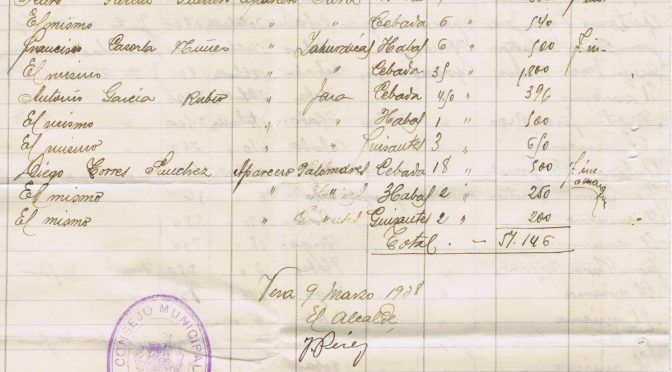 El mismo " " Cebada 6 " 540
Francisco Cazorla Nuñes " Habas 6 " 500 Fin-
El mismo " " Cebada 35 " 1,800
Antonio García Rubio " Jara Cebada 4/10 " 396
El mismo " " Habas 1 " 500
El mismo " " Guisantes 3 650
Diego Torres Sanchez Aparcero Palomares Cebada 18 " 500
El mismo " Habas 2 " 250
El mismo " Guisantes 2 " 200
Total. - 57.146
Vera 9 Marzo 1938
El Alcalde,
J Pérez
CONSEJO MUNICIPAL